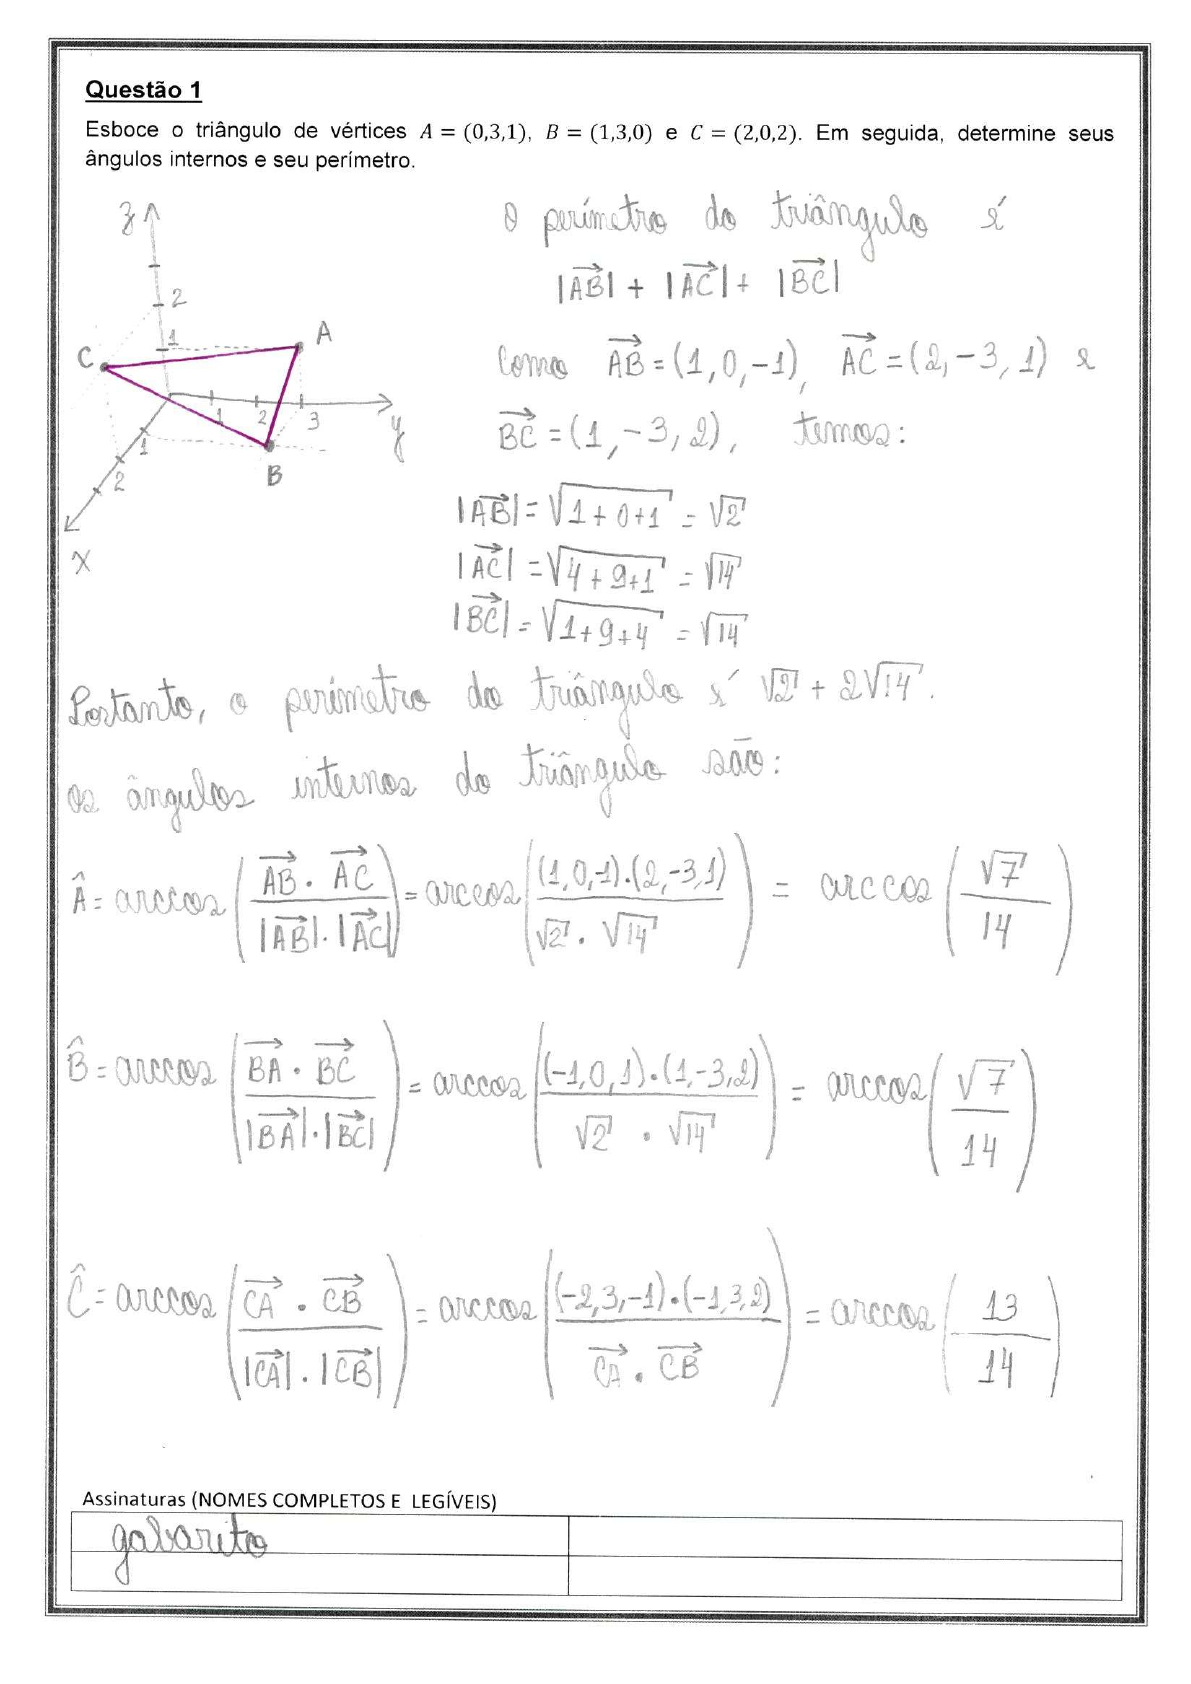 Questão 1
Esboce o triângulo de vértices A = (0,3,1), B = (1,3,0) e C = (2,0,2). Em seguida, determine seus
ângulos internos e seu perímetro.
z
2
1
A
C
1 2 3 y
1
2
B
x
O perímetro do triângulo é
|AB→| + |AC→| + |BC→|
Como AB→ = (1, 0, -1), AC→ = (2, -3, 1) e
BC→ = (1, -3, 2), temos:
|AB→| = √(1 + 0 + 1) = √2
|AC→| = √(4 + 9 + 1) = √14
|BC→| = √(1 + 9 + 4) = √14
Portanto, o perímetro do triângulo é √2 + 2√14.
Os ângulos internos do triângulo são:
Â = arccos (AB→ · AC→ / |AB→| · |AC→|) = arccos ((1,0,-1)·(2,-3,1) / √2 · √14) = arccos (√7 / 14)
B̂ = arccos (BA→ · BC→ / |BA→| · |BC→|) = arccos ((-1,0,1)·(1,-3,2) / √2 · √14) = arccos (√7 / 14)
Ĉ = arccos (CA→ · CB→ / |CA→| · |CB→|) = arccos ((-2,3,-1)·(-1,3,2) / CA→ · CB→) = arccos (13 / 14)
Assinaturas (NOMES COMPLETOS E LEGÍVEIS)
gabarito